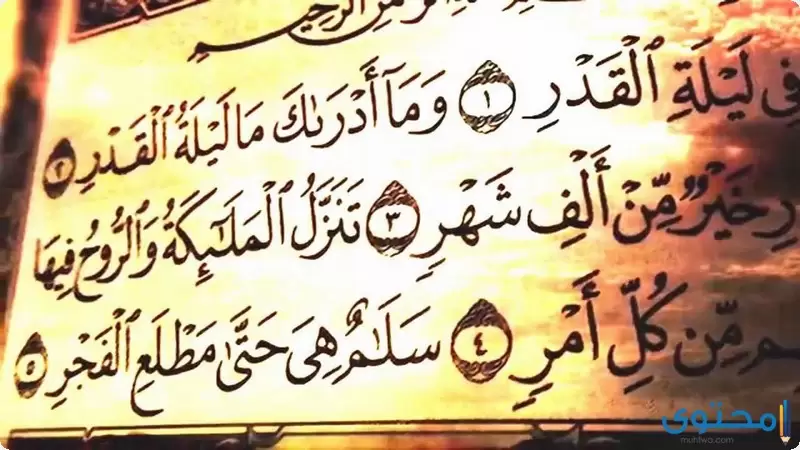 الرَّحِيمِ
فِي لَيْلَةِ ٱلْقَدْرِ ١ وَمَآ أَدْرَىٰكَ مَا لَيْلَةُ ٱلْقَدْرِ ٢
خَيْرٌ مِّنْ أَلْفِ شَهْرٍ ٣ تَنَزَّلُ ٱلْمَلَٰٓئِكَةُ وَٱلرُّوحُ فِيهَا
مِّن كُلِّ أَمْرٍ ٤ سَلَٰمٌ هِىَ حَتَّىٰ مَطْلَعِ ٱلْفَجْرِ ٥
محتوى
muhtwa.com